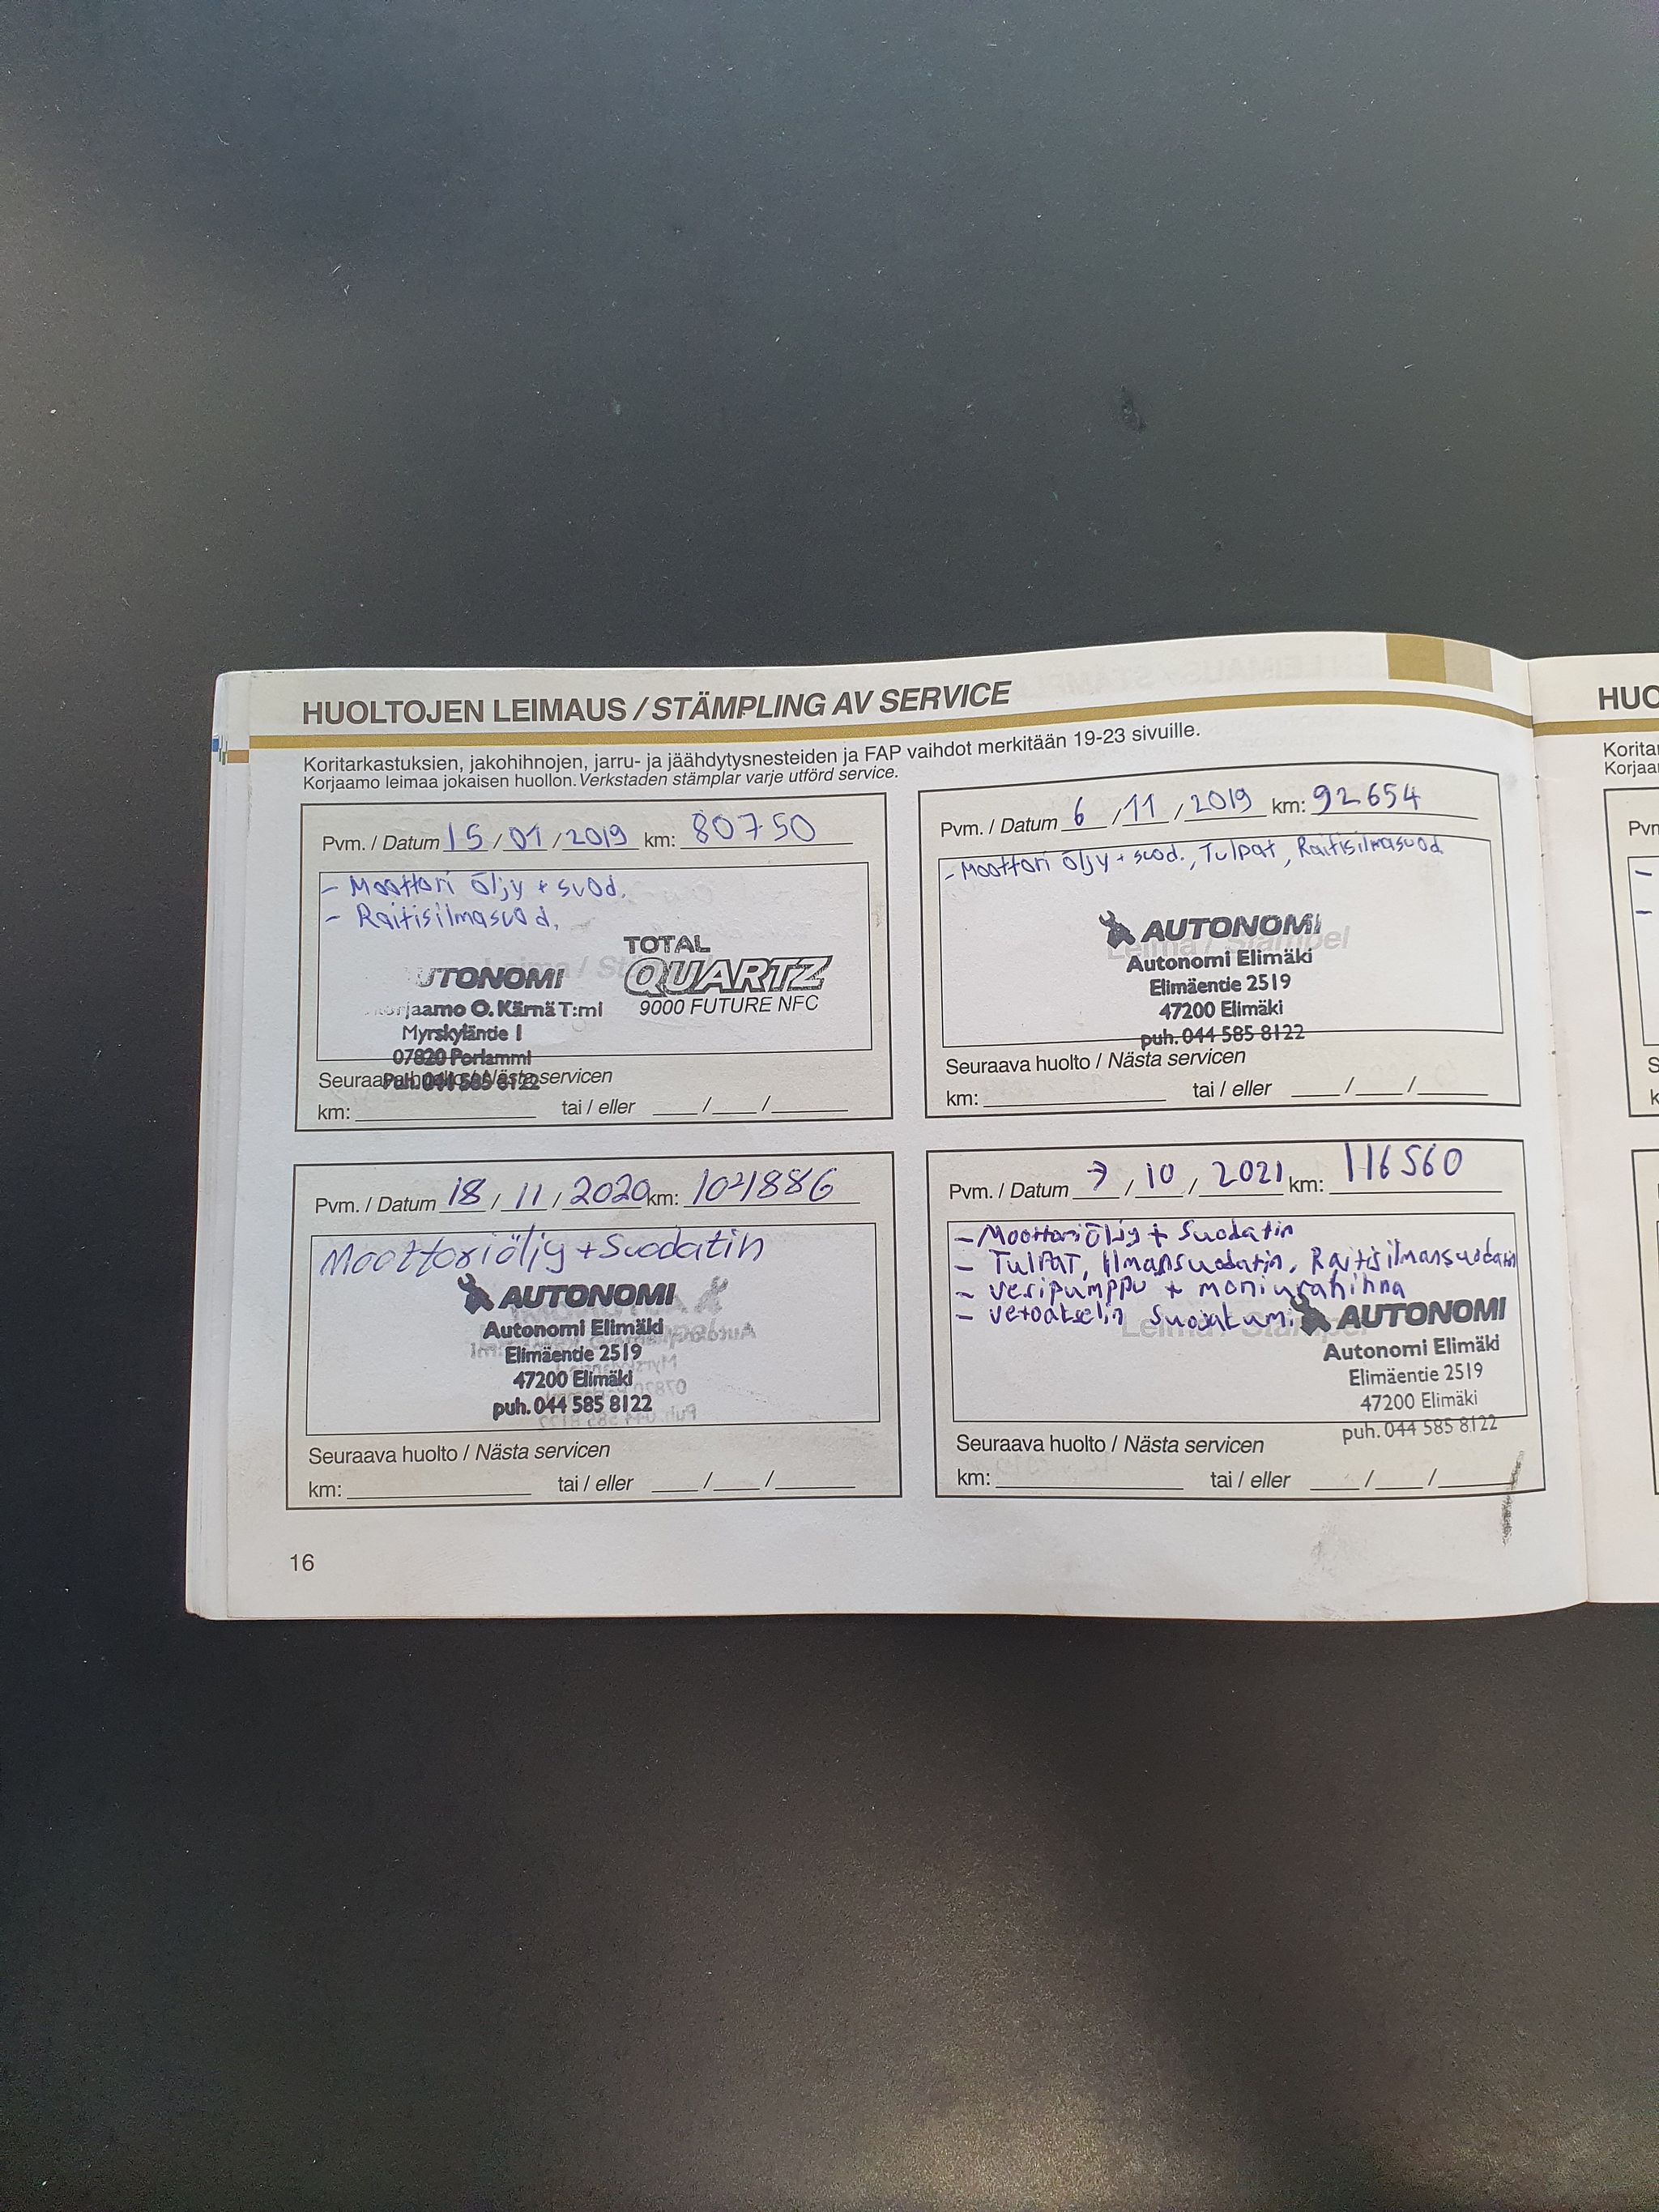 HUOLTOJEN LEIMAUS / STÄMPLING AV SERVICE
Koritarkastuksien, jakohihnojen, jarru- ja jäähdytysnesteiden ja FAP vaihdot merkitään 19-23 sivuille.
Korjaamo leimaa jokaisen huollon. Verkstaden stämplar varje utförd service.
Pvm. / Datum 15 / 01 / 2019 km: 80750
- Moottori öljy + suod.
- Raitisilmasuod.
Leima / Stämpel
TOTAL
QUARTZ
9000 FUTURE NFC
UTONOMI
orjaamo O. Kärnä T:mi
Myrskyläntie 1
07820 Porlammi
Puh. 044 585 8122
Seuraava huolto / Nästa servicen
km: tai / eller / /
Pvm. / Datum 6 / 11 / 2019 km: 92654
- Moottori öljy + suod., Tulpat, Raitisilmasuod
Leima / Stämpel
AUTONOMI
Autonomi Elimäki
Elimäentie 2519
47200 Elimäki
puh. 044 585 8122
Seuraava huolto / Nästa servicen
km: tai / eller / /
Pvm. / Datum 18 / 11 / 2020 km:
Moottoriöljy + Suodatin
AUTONOMI
Autonomi Elimäki
Elimäentie 2519
47200 Elimäki
puh. 044 585 8122
Seuraava huolto / Nästa servicen
km: tai / eller / /
Pvm. / Datum 7 / 10 / 2021 km: 116560
- Moottoriöljy + Suodatin
- Tulpat, Ilmansuodatin, Raitisilmansuodatin
- vesipumppu + moniurahihna
- vetoakselin
Leima / Stämpel
AUTONOMI
Autonomi Elimäki
Elimäentie 2519
47200 Elimäki
puh. 044 585 8122
Seuraava huolto / Nästa servicen
km: tai / eller / /
16
HUO
Korita
Korjaa